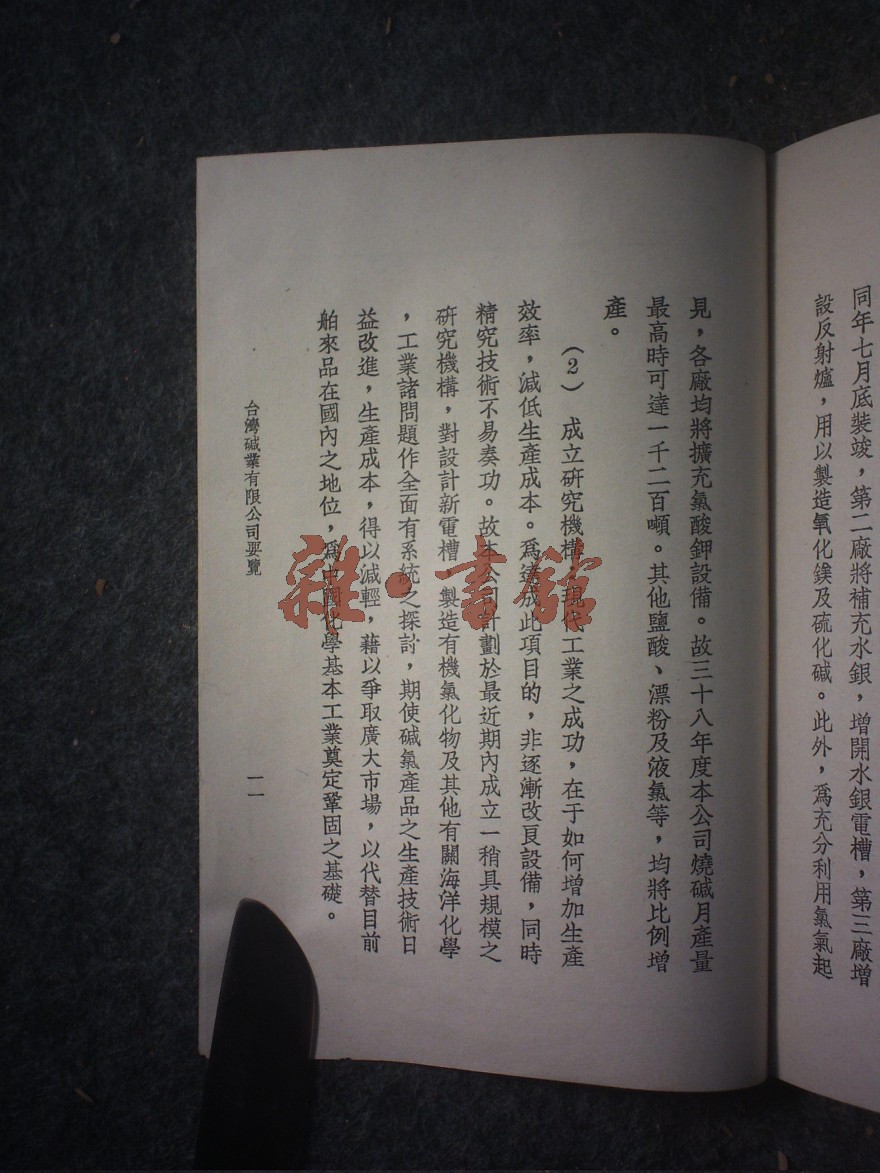 同年七月底裝竣，第二廠將補充水銀，增開水銀電槽，第三廠增
設反射爐，用以製造氧化鎂及硫化碱。此外，爲充分利用氯氣起
見，各廠均將擴充氯酸鉀設備。故三十八年度本公司燒碱月產量
最高時可達一千二百噸。其他鹽酸、漂粉及液氯等，均將比例增
產。
（2） 成立研究機構，現代工業之成功，在于如何增加生產
效率，減低生產成本。爲達成此項目的，非逐漸改良設備，同時
精究技術不易奏功。故本公司計劃於最近期內成立一稍具規模之
研究機構，對設計新電槽 製造有機氯化物及其他有關海洋化學
，工業諸問題作全面有系統之探討，期使碱氯產品之生產技術日
益改進，生產成本，得以減輕，藉以爭取廣大市場，以代替目前
舶來品在國內之地位，爲中國化學基本工業奠定鞏固之基礎。
台灣碱業有限公司要覽
一一
雜·書館